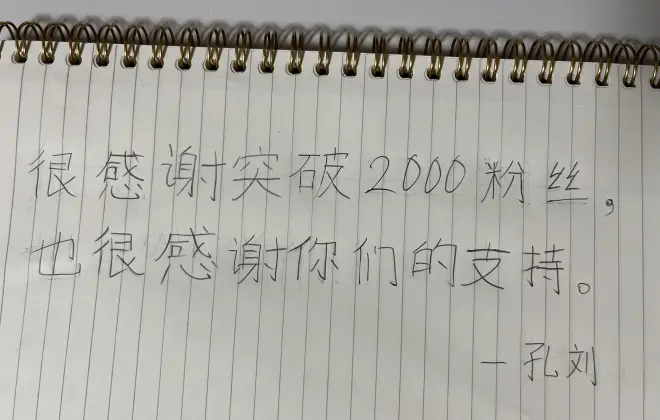 很感谢突破2000粉丝，
也很感谢你们的支持。
一孔刘